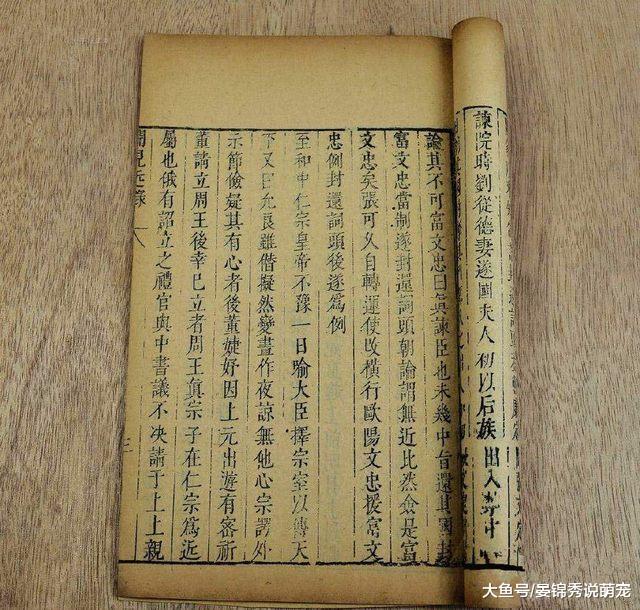 諫院時劉從德妻遂國夫人初以后族出入
論其不可富文忠曰眞諫臣也未幾中旨還其國封
富文忠當制遂封還詞頭朝論謂無近比然僉是富
文忠矣張可久自轉運使改橫行歐陽文忠援富文
忠例封還詞頭後遂爲例
至和中仁宗皇帝不豫一日喻大臣擇宗室以傳天
下又曰允良雖僭擬然變晝作夜諒無他心宗諤外
示節儉疑其有心者後董婕妤因上元出遊有密祈
董請立周王後幸已立者周王眞宗子在仁宗爲近
屬也俄有詔立之禮官與中書議不决請于上上親
聞見近錄
三
大鱼号/晏锦秀说萌宠